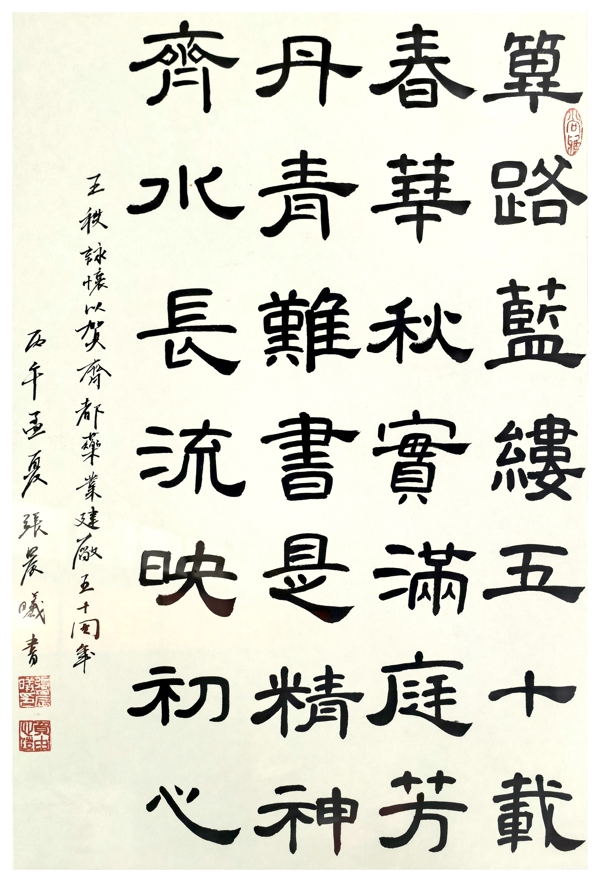 篳路藍縷五十載
春華秋實滿庭芳
丹青難書是精神
齊水長流映初心
王秩詠懷以贺齊都藥業建廠五十周年
丙午孟夏張晨曦書